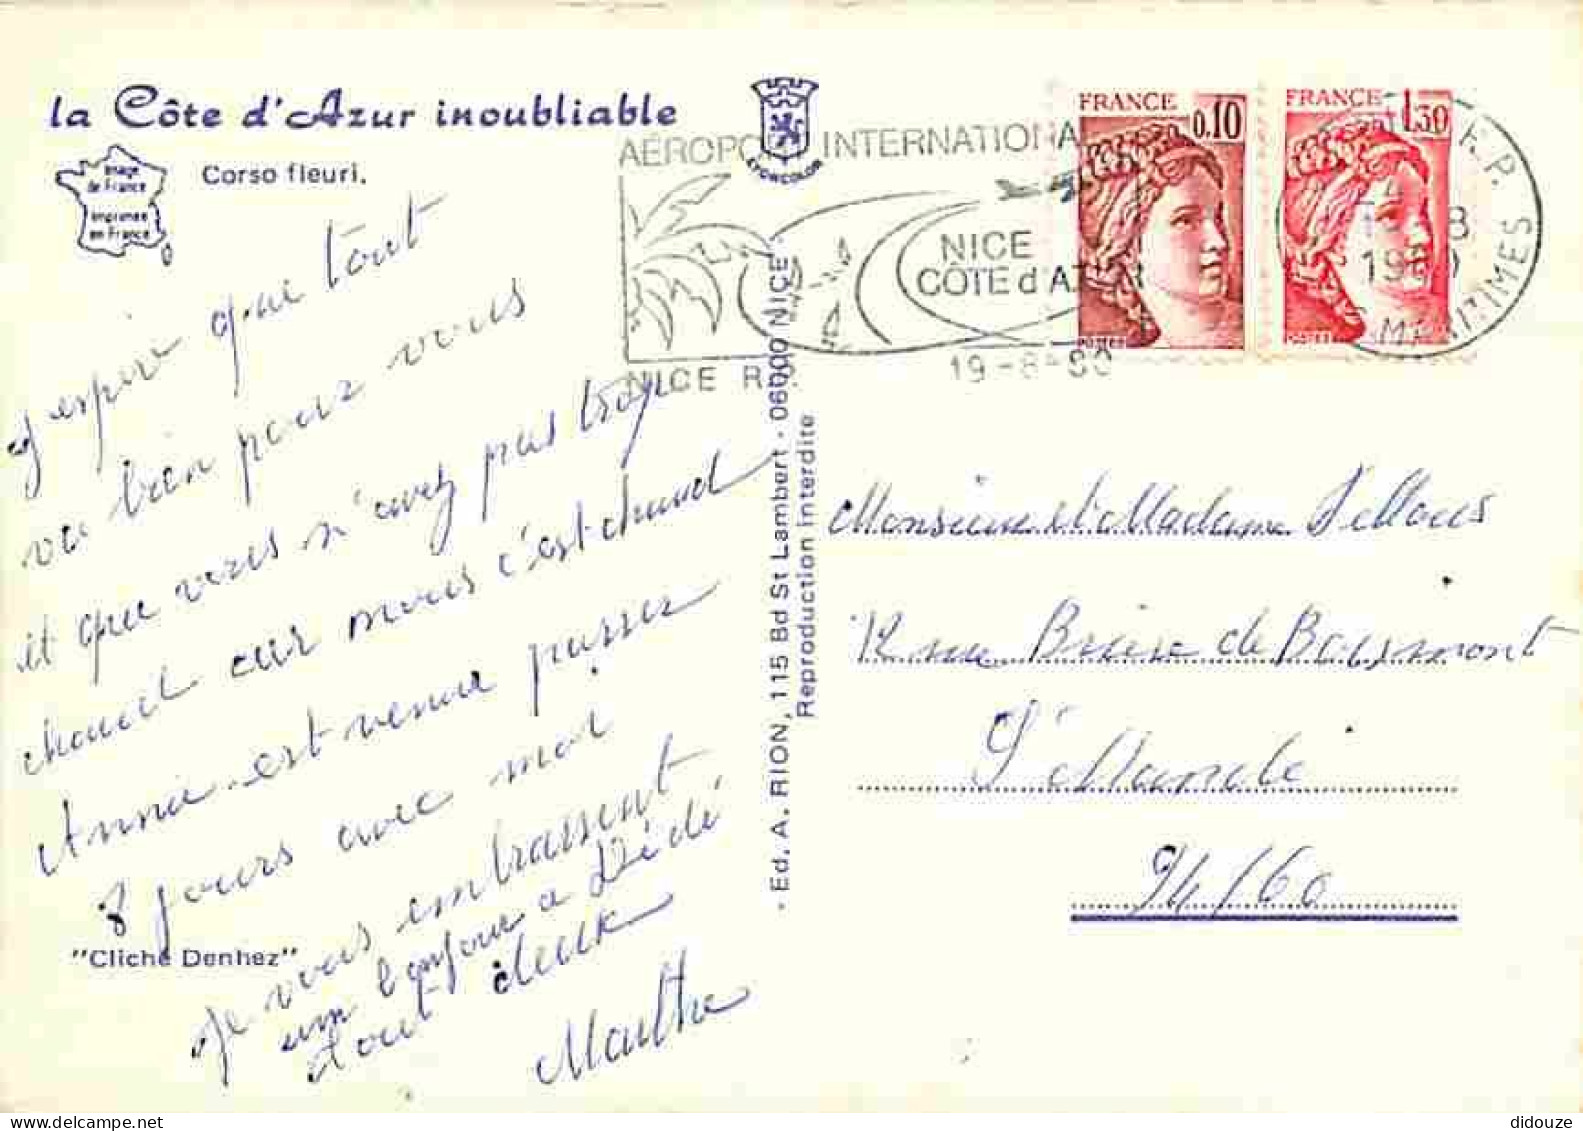 la Côte d'Azur inoubliable
Corso fleuri.
Image
de France
imprimée
en France
LYONCOLOR
AÉROPO INTERNATIONA
NICE
CÔTE d'AZUR
NICE R.P.
19-8-80
FRANCE 0,10
POSTES
FRANCE 1,30
POSTES
R.P.
19-8
1980
MARITIMES
j'espère que tout
va bien pour vous
et que vous n'avez pas trop
chaud car nous c'est chaud
Annie est venue passer
8 jours avec moi
je vous embrassent
un bonjour a Dédé
tout deux
Marthe
"Cliché Denhez"
- Ed. A. RION, 115 Bd St Lambert - 06000 NICE -
Reproduction Interdite
Monsieur et Madame
12 rue Brière de Boismont
St Mandé
94160
didouze